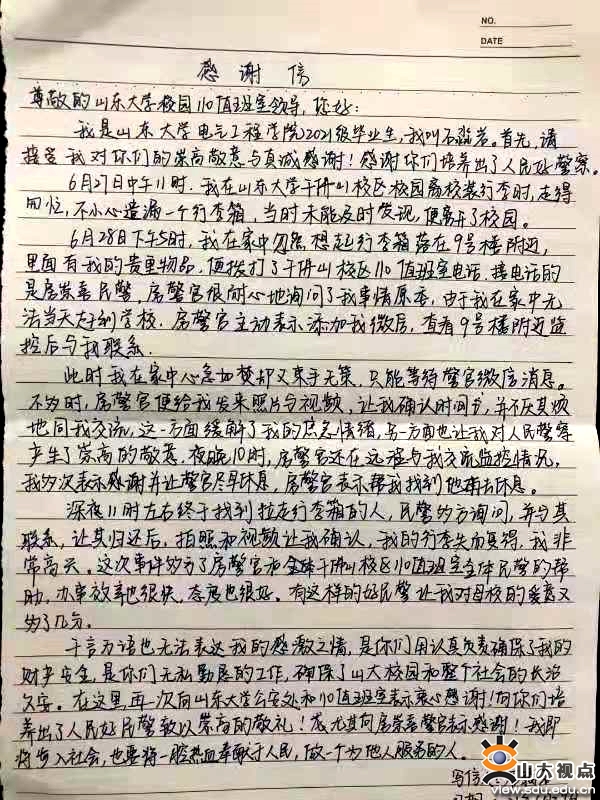 NO.
DATE
感谢信
尊敬的山东大学校园110值班室领导,您好:
我是山东大学电气工程学院2021级毕业生,我叫石磊若。首先,请
接受我对你们的崇高敬意与真诚感谢!感谢你们培养出了人民好警察。
6月27日中午11时,我在山东大学千佛山校区校园离校装行李时,走得
匆忙,不小心遗漏一个行李箱,当时未能及时发现,便离开了校园。
6月28日下午5时,我在家中忽然想起行李箱落在9号楼附近,
里面有我的贵重物品,便拨打了千佛山校区110值班室电话,接电话的
是房崇喜民警,房警官很耐心地询问了我事情原委,由于我在家中无
法当天赶到学校,房警官主动表示添加我微信,查看9号楼附近监
控后与我联系.
此时我在家中心急如焚却又束手无策,只能等待警官微信消息。
不多时,房警官便给我发来照片与视频,让我确认时间节,并不厌其烦
地同我交流,这一方面缓解了我的焦急情绪,另一方面也让我对人民警察
产生了崇高的敬意.夜晚10时,房警官还在远程与我交流监控情况,
我多次表示感谢并让警官尽早休息,房警官表示帮我找到他再去休息。
深夜11时左右终于找到拉走行李箱的人,民警多方询问,并与其
联系,让其归还后,拍照和视频让我确认,我的行李失而复得,我非
常高兴。这次事件多亏了房警官和全体千佛山校区110值班室全体民警的帮
助,办事效率也很快,态度也很好。有这样的好民警让我对母校的爱意又
多了几分。
千言万语也无法表达我的感激之情,是你们用认真负责确保了我的
财产安全,是你们无私勤恳的工作,确保了山大校园和整个社会的长治
久安。在这里再一次向山东大学公安处和110值班室表示衷心感谢!向你们培
养出了人民好民警致以崇高的敬礼!尤其向房崇喜警官表示感谢!我即
将步入社会,也要将一腔热血奉献于人民,做一个为他人服务的人。
写信
山大视点
www.view.sdu.edu.cn